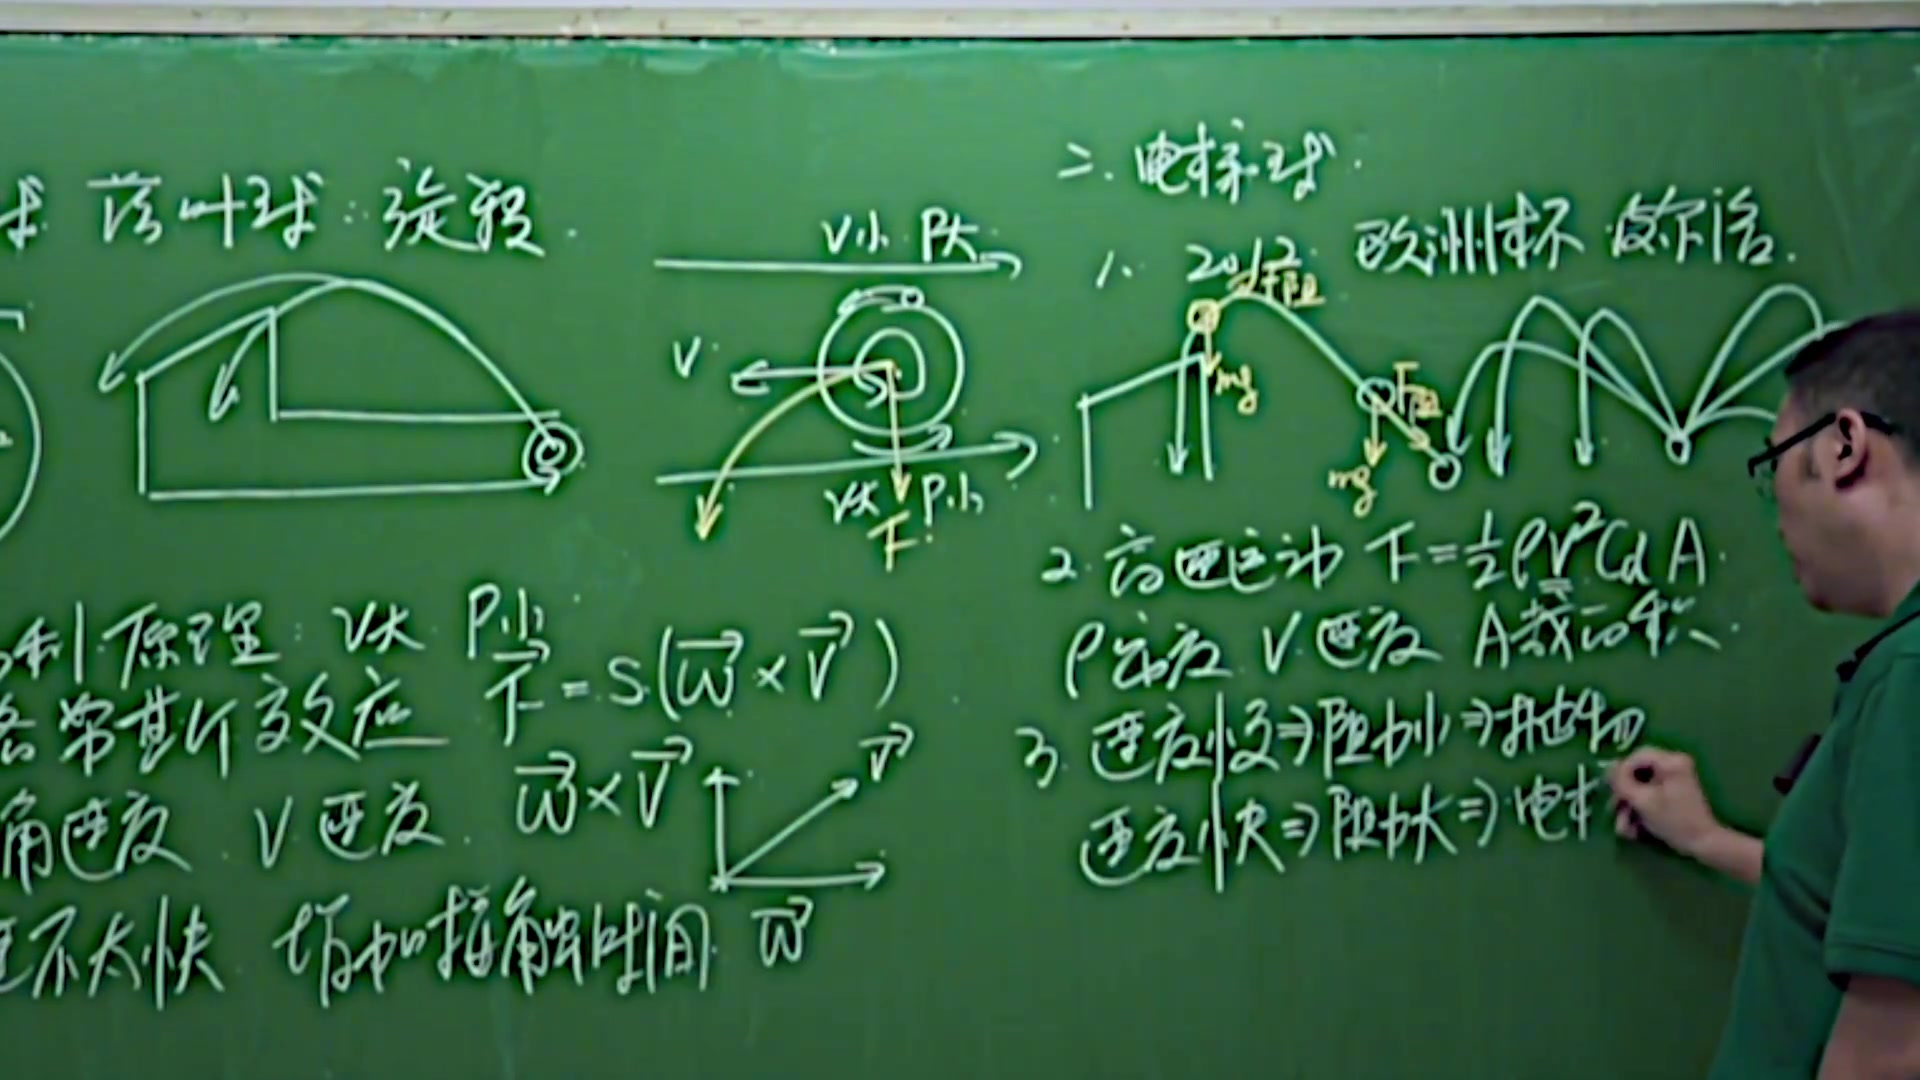 球 落叶球：旋程.
V小 P大
V
V大 P小
F
利原理：V大 P小
格努斯效应 F=S(ω×V)
角速度 V 速度 ω×V
V
速不太快 增加接触时间 ω
二.电梯球.
1. 2012 欧洲杯 皮尔洛.
F阻
mg
F阻
mg
2.高速运动 F=½ρV²CdA.
ρ密度 V速度 A截面积.
3.速度慢⇒阻力小⇒抛物
速度快⇒阻力大⇒电梯